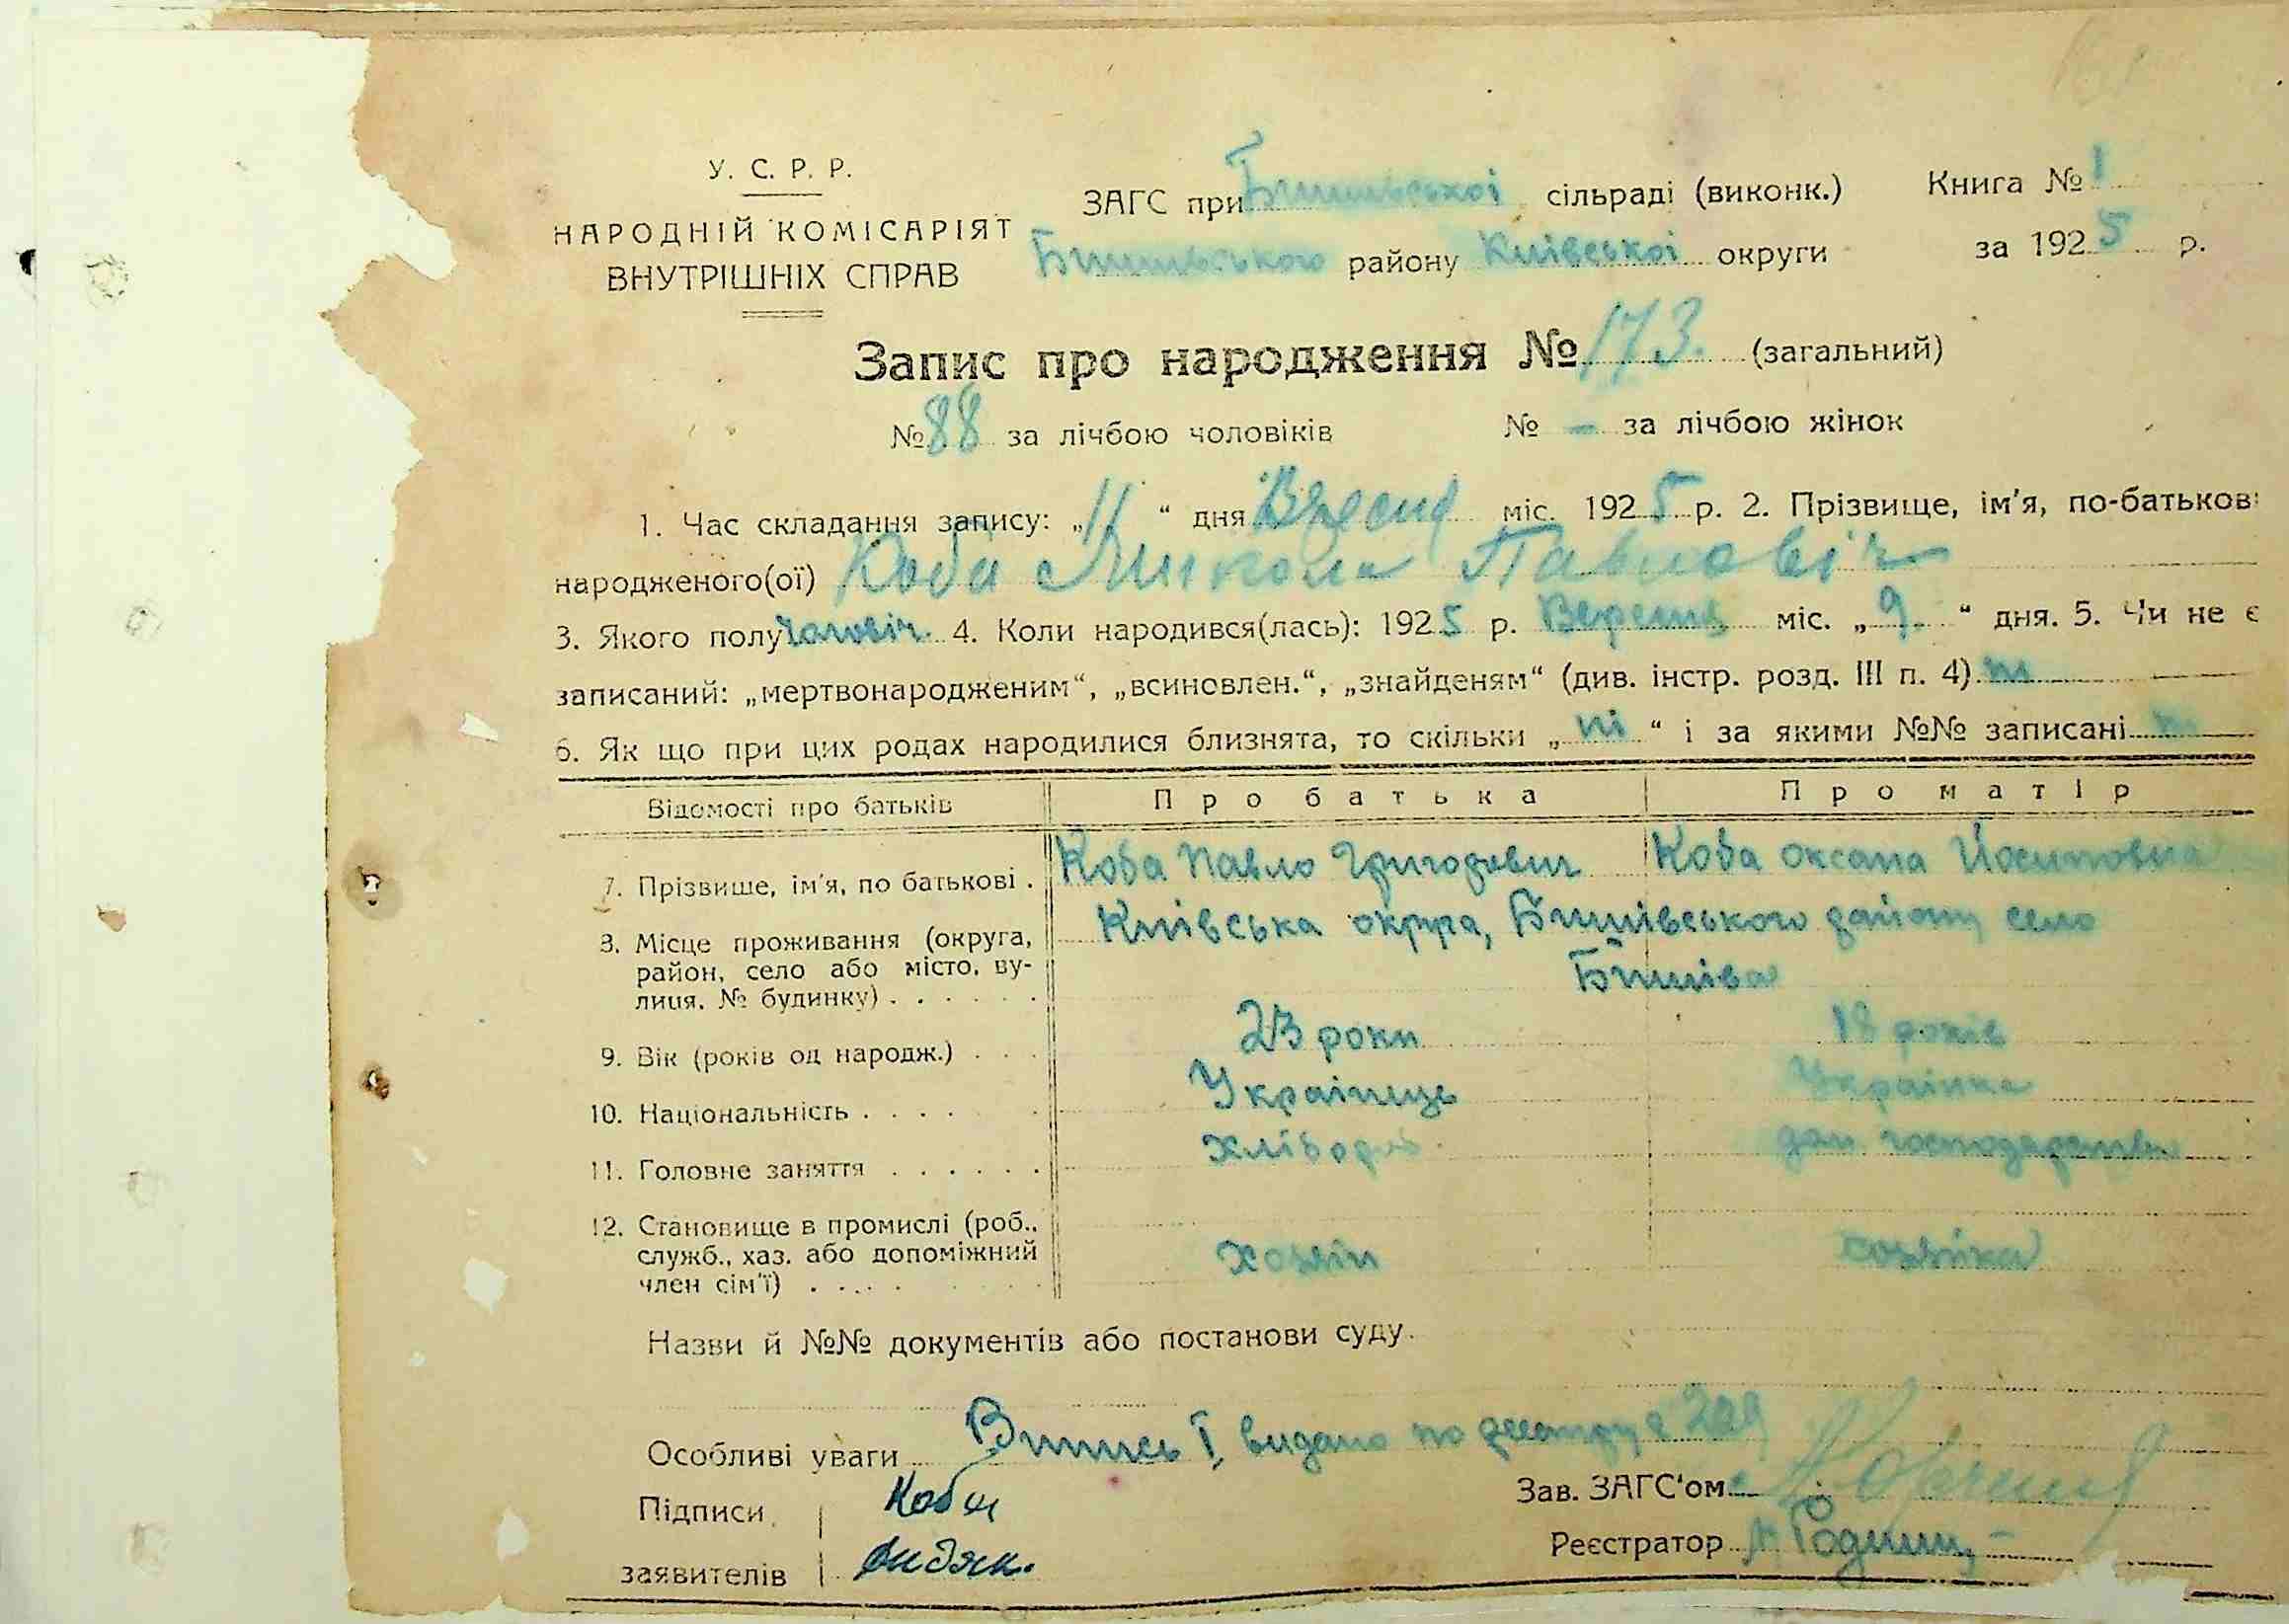 У. С. Р. Р.
НАРОДНІЙ КОМІСАРІЯТ
ВНУТРІШНІХ СПРАВ
ЗАГС при сільраді (виконк.) Книга № 1
району Київської округи за 1925 р.
Запис про народження № 173. (загальний)
№ 88 за лічбою чоловіків № – за лічбою жінок
1. Час складання запису: „11“ дня міс. 1925 р. 2. Прізвище, ім'я, по-батькові
народженого(ої) Коба Микола Павлович
3. Якого полу чоловіч. 4. Коли народився(лась): 1925 р. Вересня міс. „9.“ дня. 5. Чи не є
записаний: „мертвонародженим“, „всиновлен.“, „знайденям“ (див. інстр. розд. III п. 4) ні
6. Як що при цих родах народилися близнята, то скільки „ні“ і за якими №№ записані ні
Відомості про батьків Про батька Про матір
7. Прізвише, ім'я, по батькові . Коба Павло Григорович Коба Оксана Йосиповна
8. Місце проживання (округа, Київська округа, Бишівського району село
район, село або місто, ву-
лиця. № будинку) . . . . . . Бишів
9. Вік (років од народж.) . . . 23 роки 18 років
10. Національність . . . . Українець Українка
11. Головне заняття . . . . . . Хлібороб дом господарство
12. Становище в промислі (роб.,
служб., хаз. або допоміжний Хозяїн
член сім'ї) . . . .
Назви й №№ документів або постанови суду.
Особливі уваги Випись І, видано по реестру
Підписи Коба Зав. ЗАГС'ом
заявителів Реєстратор